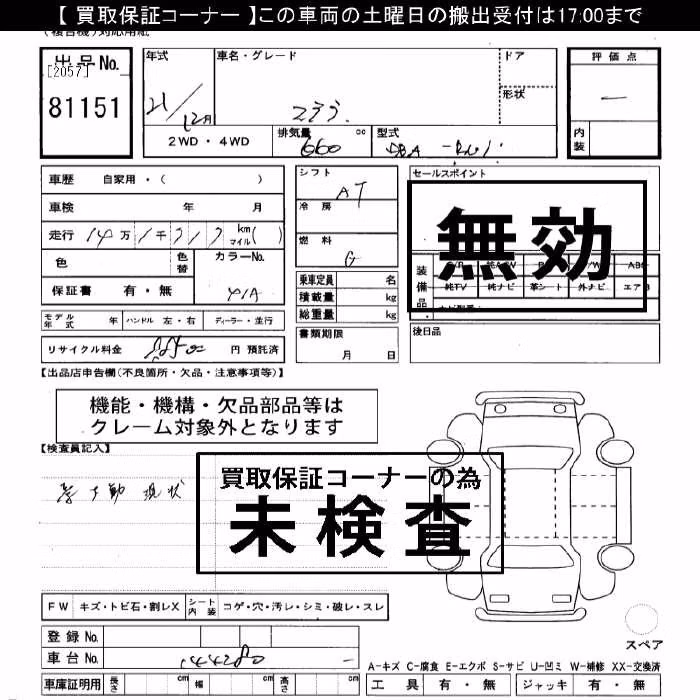 【 買取保証コーナー 】この車両の土曜日の搬出受付は17:00まで
出品No.
[2057]
81151
年式
21/12月
車名・グレード
ドア
形状
評価点
内装
2WD・4WD
排気量 660 cc
型式 DBA
車歴 自家用・( )
車検 年 月
走行 14万1千 km マイル( )
色
色替
カラーNo.
保証書 有・無
モデル年式 年
ハンドル 左・右
ディーラー・並行
リサイクル料金 円 預託済
シフト AT
冷房
燃料 G
乗車定員 名
積載量 kg
総重量 kg
書類期限
月 日
セールスポイント
無効
装備品
純TV 純ナビ 革シート 外ナビ
後日品
【出品店申告欄(不良箇所・欠品・注意事項等)】
機能・機構・欠品部品等は
クレーム対象外となります
【検査員記入】
現状
買取保証コーナーの為
未検査
FW キズ・トビ石・割レX
シート内装 コゲ・穴・汚レ・シミ・破レ・スレ
登録No.
車台No. 144280
車庫証明用 長さ cm 幅 cm 高さ cm
スペア
A-キズ C-腐食 E-エクボ S-サビ U-凹ミ W-補修 XX-交換済
工具 有・無 ジャッキ 有・無